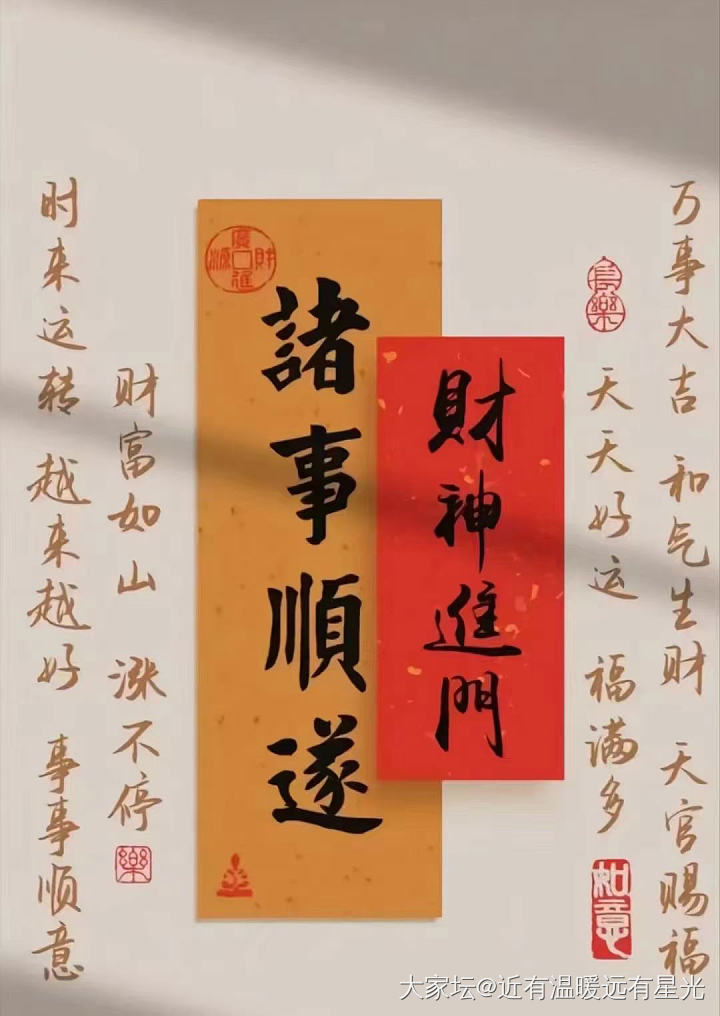 万事大吉 和气生财 天官赐福
天天好运 福满多
如意
財神進門
諸事順遂
廣進財源
财富如山 涨不停
樂
时来运转 越来越好 事事顺意
大家坛@近有温暖远有星光